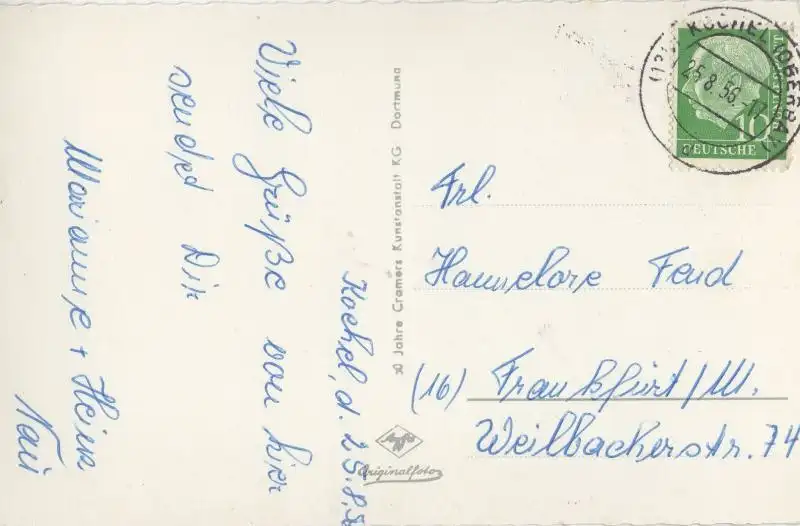 Kochel, d. 25.8.5
Viele Grüße von hier
sendet Dir
Marianne + Heinz
50 Jahre Cramers Kunstanstalt KG Dortmund
Agfa
Originalfoto
KOCHEL (OBERBAY)
25.8.56.-17
10
DEUTSCHE
BUNDESPOST
Frl.
Hannelore Fend
(16) Frankfurt/M.
Weilbacherstr. 74